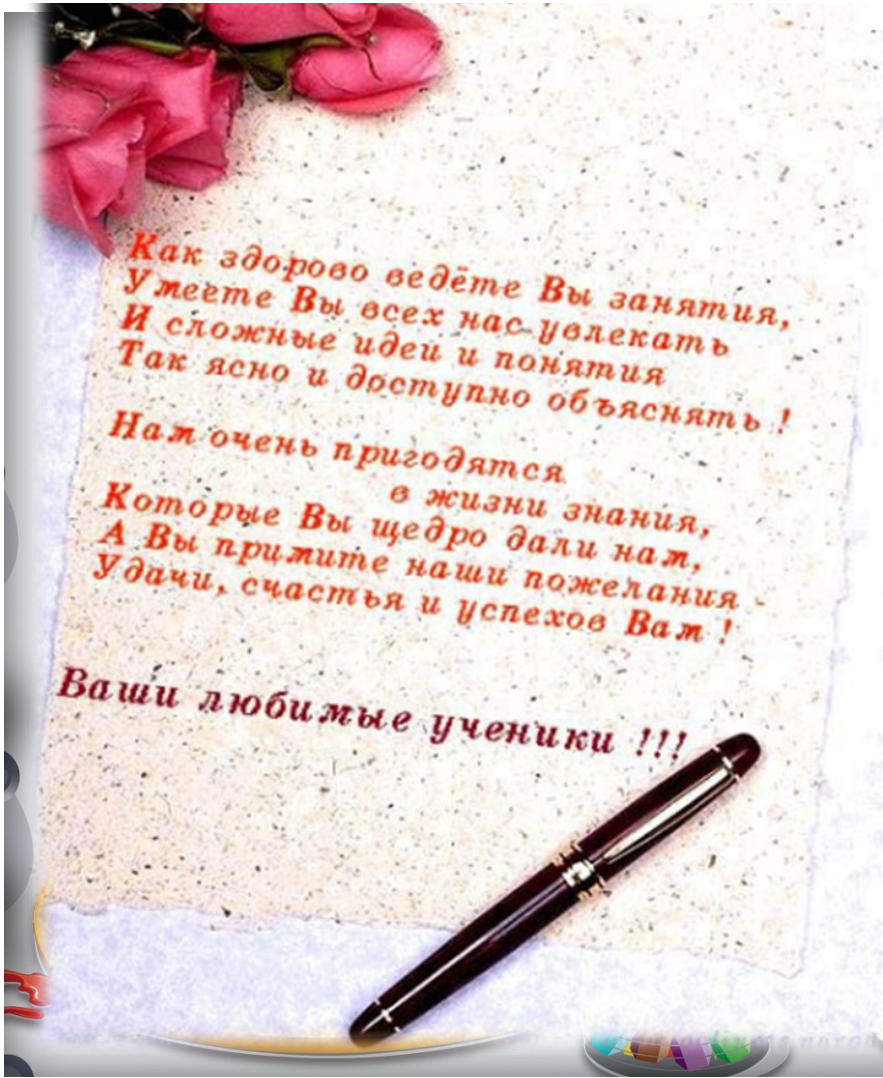 Как здорово ведёте Вы занятия,
Умеете Вы всех нас увлекать
И сложные идеи и понятия
Так ясно и доступно объяснять !
Нам очень пригодятся
в жизни знания,
Которые Вы щедро дали нам,
А Вы примите наши пожелания -
Удачи, счастья и успехов Вам !
Ваши любимые ученики !!!